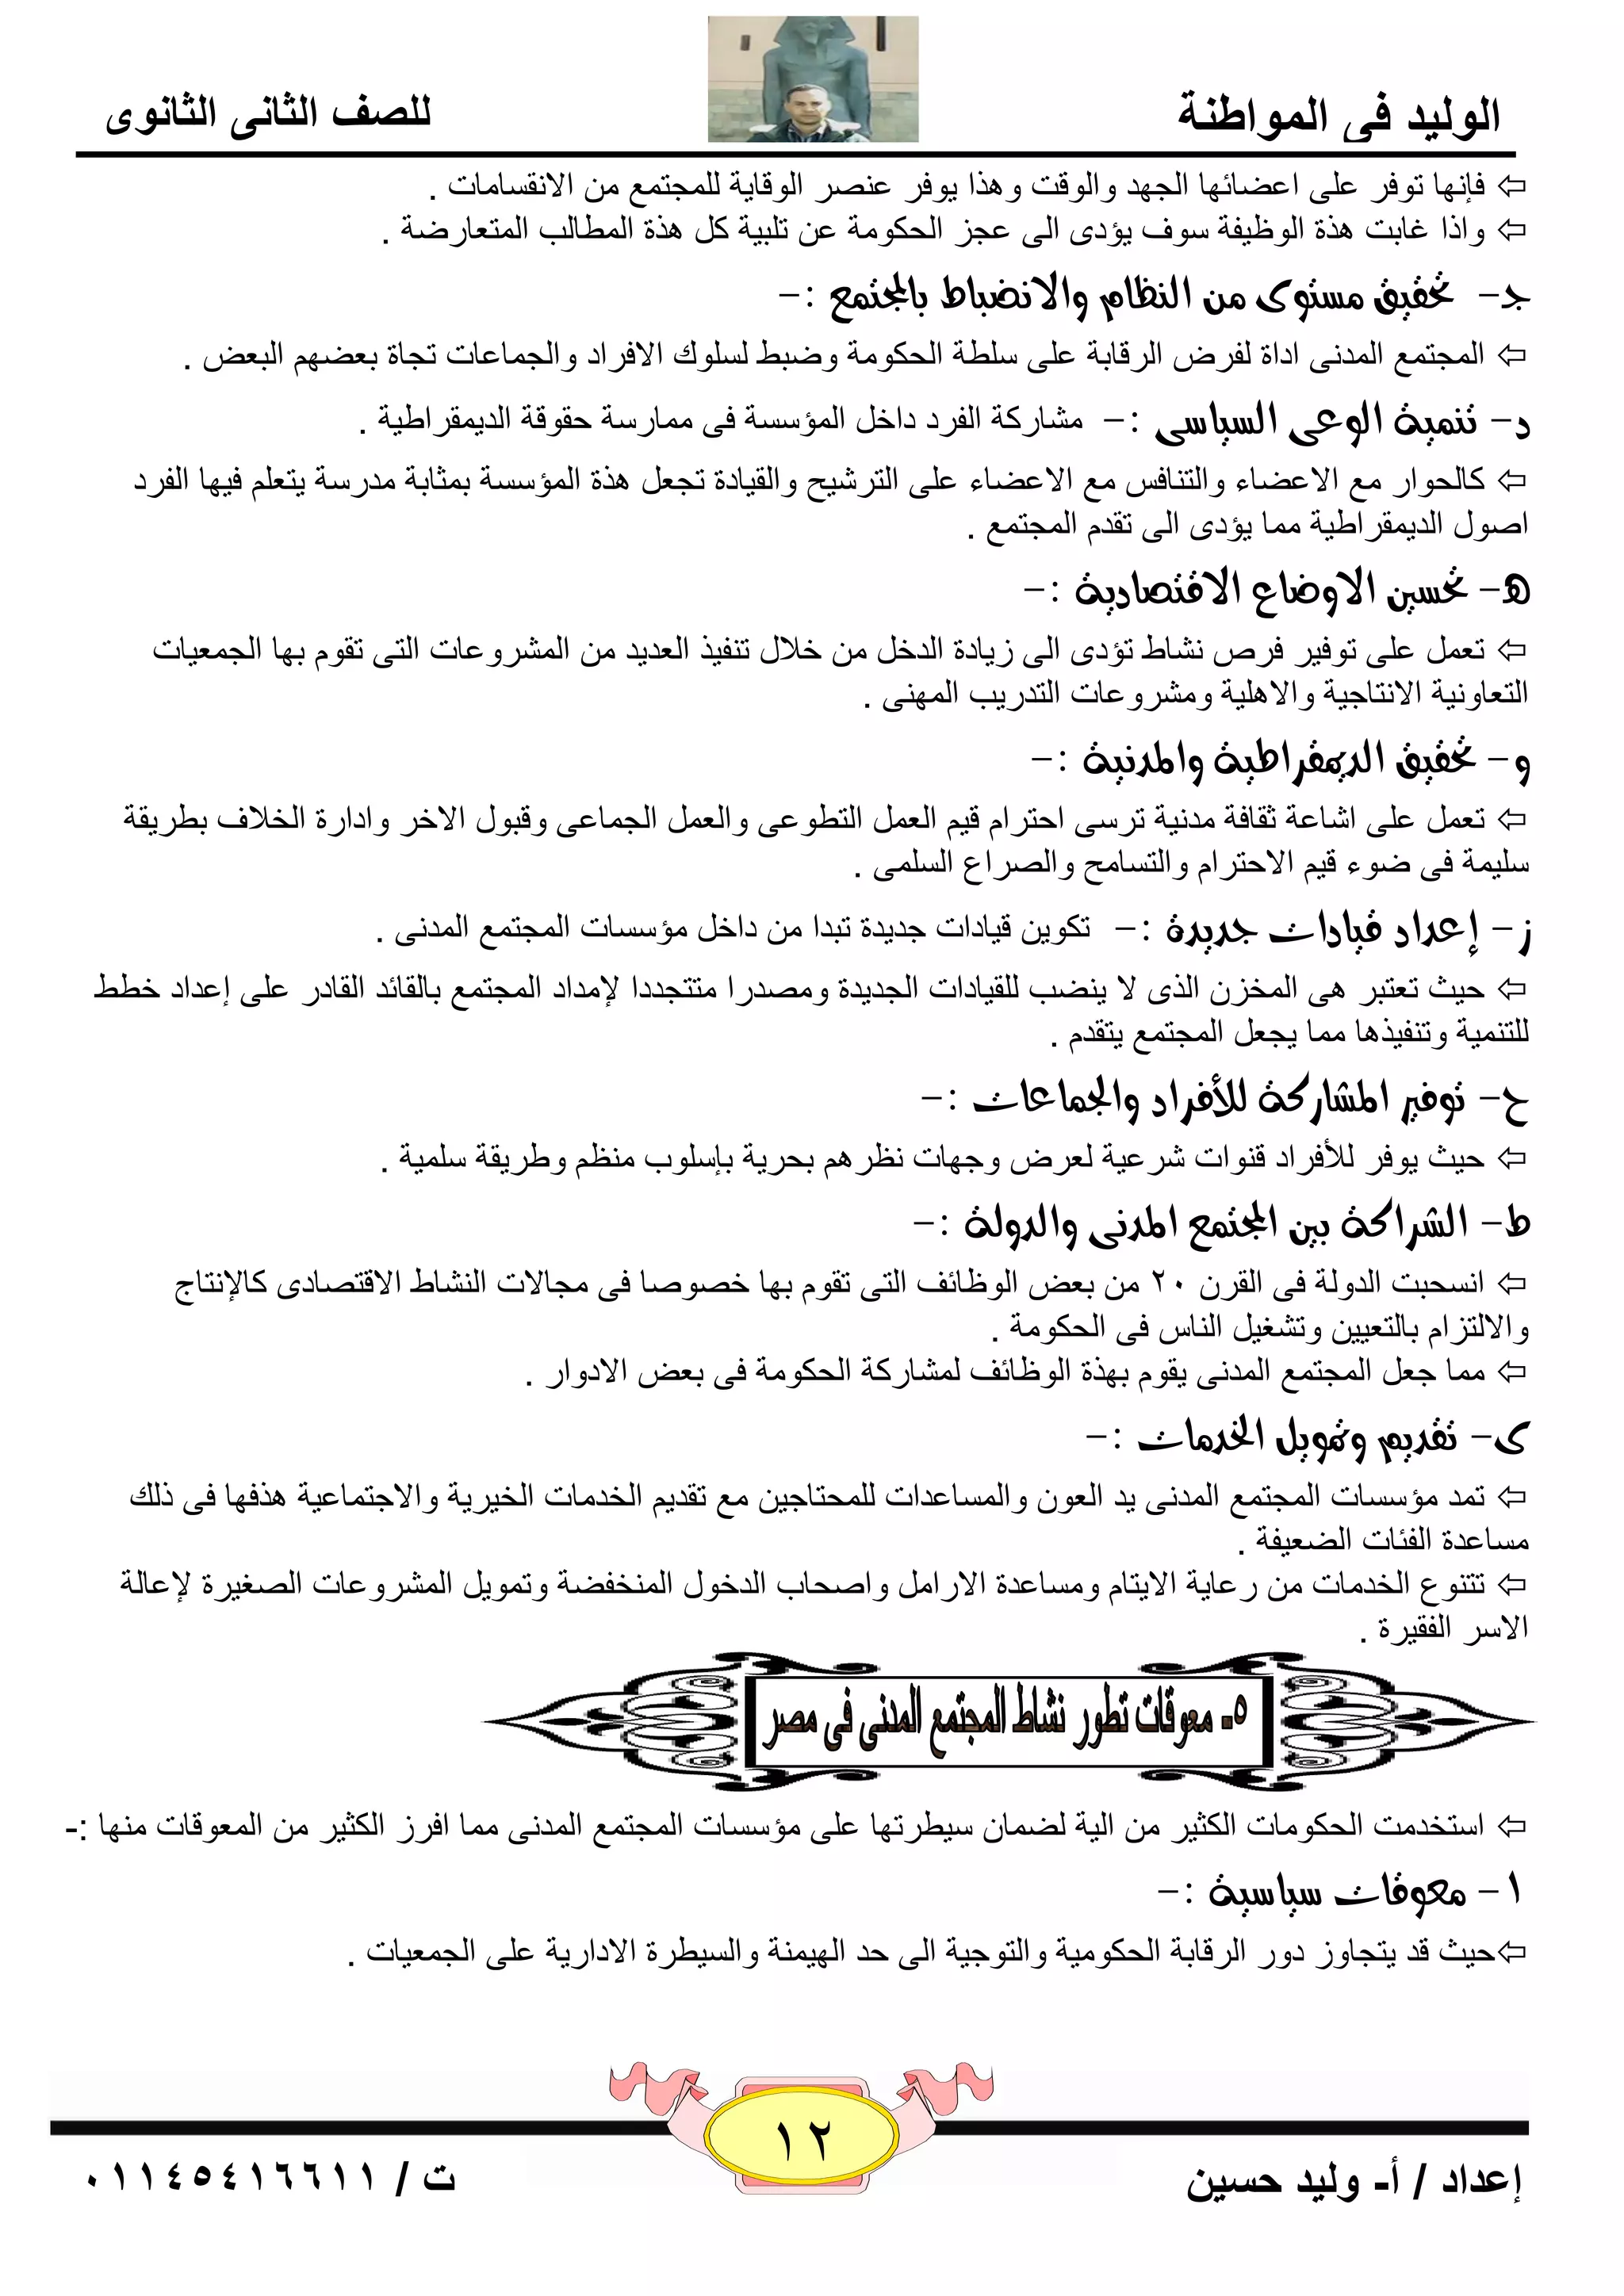 الوليد فى المواطنة
للصف الثانى الثانوى
⇦ فإنها توفر على اعضائها الجهد والوقت وهذا يوفر عنصر الوقاية للمجتمع من الانقسامات .
⇦ واذا غابت هذة الوظيفة سوف يؤدى الى عجز الحكومة عن تلبية كل هذة المطالب المتعارضة .
جـ- تحقيق مستوى من النظام والانضباط بالمجتمع :-
⇦ المجتمع المدنى اداة لفرض الرقابة على سلطة الحكومة وضبط لسلوك الافراد والجماعات تجاة بعضهم البعض .
د- تنمية الوعى السياسى :- مشاركة الفرد داخل المؤسسة فى ممارسة حقوقة الديمقراطية .
⇦ كالحوار مع الاعضاء والتنافس مع الاعضاء على الترشيح والقيادة تجعل هذة المؤسسة بمثابة مدرسة يتعلم فيها الفرد
اصول الديمقراطية مما يؤدى الى تقدم المجتمع .
هـ- تحسين الاوضاع الاقتصادية :-
⇦ تعمل على توفير فرص نشاط تؤدى الى زيادة الدخل من خلال تنفيذ العديد من المشروعات التى تقوم بها الجمعيات
التعاونية الانتاجية والاهلية ومشروعات التدريب المهنى .
و- تحقيق الديمقراطية والمدنية :-
⇦ تعمل على اشاعة ثقافة مدنية ترسى احترام قيم العمل التطوعى والعمل الجماعى وقبول الاخر وادارة الخلاف بطريقة
سليمة فى ضوء قيم الاحترام والتسامح والصراع السلمى .
ز- إعداد قيادات جديدة :- تكوين قيادات جديدة تبدا من داخل مؤسسات المجتمع المدنى .
⇦ حيث تعتبر هى المخزن الذى لا ينضب للقيادات الجديدة ومصدرا متتجددا لإمداد المجتمع بالقائد القادر على إعداد خطط
للتنمية وتنفيذها مما يجعل المجتمع يتقدم .
ح- توفير المشاركة للأفراد والجماعات :-
⇦ حيث يوفر للأفراد قنوات شرعية لعرض وجهات نظرهم بحرية بإسلوب منظم وطريقة سلمية .
ط- الشراكة بين المجتمع المدنى والدولة :-
⇦ انسحبت الدولة فى القرن ٢٠ من بعض الوظائف التى تقوم بها خصوصا فى مجالات النشاط الاقتصادى كالإنتاج
والالتزام بالتعيين وتشغيل الناس فى الحكومة .
⇦ مما جعل المجتمع المدنى يقوم بهذة الوظائف لمشاركة الحكومة فى بعض الادوار .
ى- تقديم وتمويل الخدمات :-
⇦ تمد مؤسسات المجتمع المدنى يد العون والمساعدات للمحتاجين مع تقديم الخدمات الخيرية والاجتماعية هذفها فى ذلك
مساعدة الفئات الضعيفة .
⇦ تتنوع الخدمات من رعاية الايتام ومساعدة الارامل واصحاب الدخول المنخفضة وتمويل المشروعات الصغيرة لإعالة
الاسر الفقيرة .
٥- معوقات تطور نشاط المجتمع المدنى فى مصر
⇦ استخدمت الحكومات الكثير من الية لضمان سيطرتها على مؤسسات المجتمع المدنى مما افرز الكثير من المعوقات منها :-
١- معوقات سياسية :-
⇦حيث قد يتجاوز دور الرقابة الحكومية والتوجية الى حد الهيمنة والسيطرة الادارية على الجمعيات .
١٢
إعداد / أ- وليد حسين
ت / ٠١١٤٥٤١٦٦١١